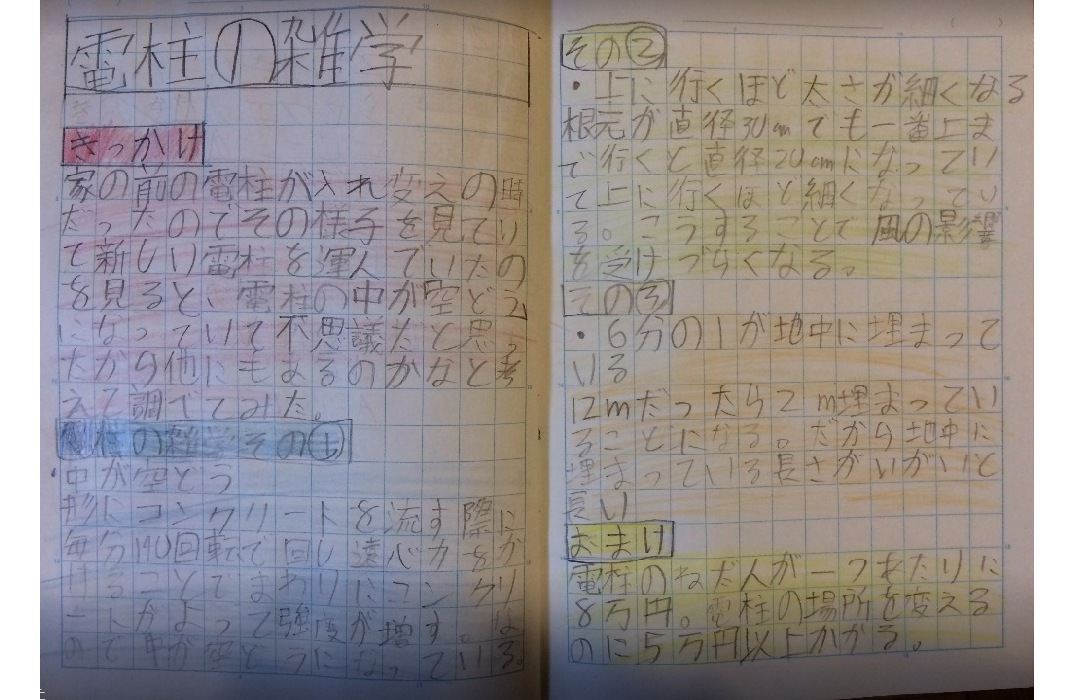 電柱の雑学
きっかけ
家の前の電柱が入れ変えの時
だったのでその様子を見てい
て新しい電柱を運んでいたの
を見ると、電柱の中が空どう
になっていて不思議だと思っ
たから他にもあるのかなと考
えて調べてみた。
電柱の雑学その①
・中が空どう
形にコンクリートを流す際に
毎分 回転で回し遠心力をか
けることでまわりにコンクリ
ートがよって強度が増す。な
ので中が空どうになっている。
その②
・上に行くほど太さが細くなる
根元が直径30cmでも一番上ま
で行くと直径20cmになってい
て上に行くほど細くなってい
る。こうすることで風の影響
を受けづらくなる。
その③
・6分の1が地中に埋まって
いる
12mだったら2m埋まってい
ることになる。だから地中に
埋まっている長さがいがいと
長い
おまけ
電柱のねだんが一つあたりに
8万円。電柱の場所を変える
のに5万円以上かかる。